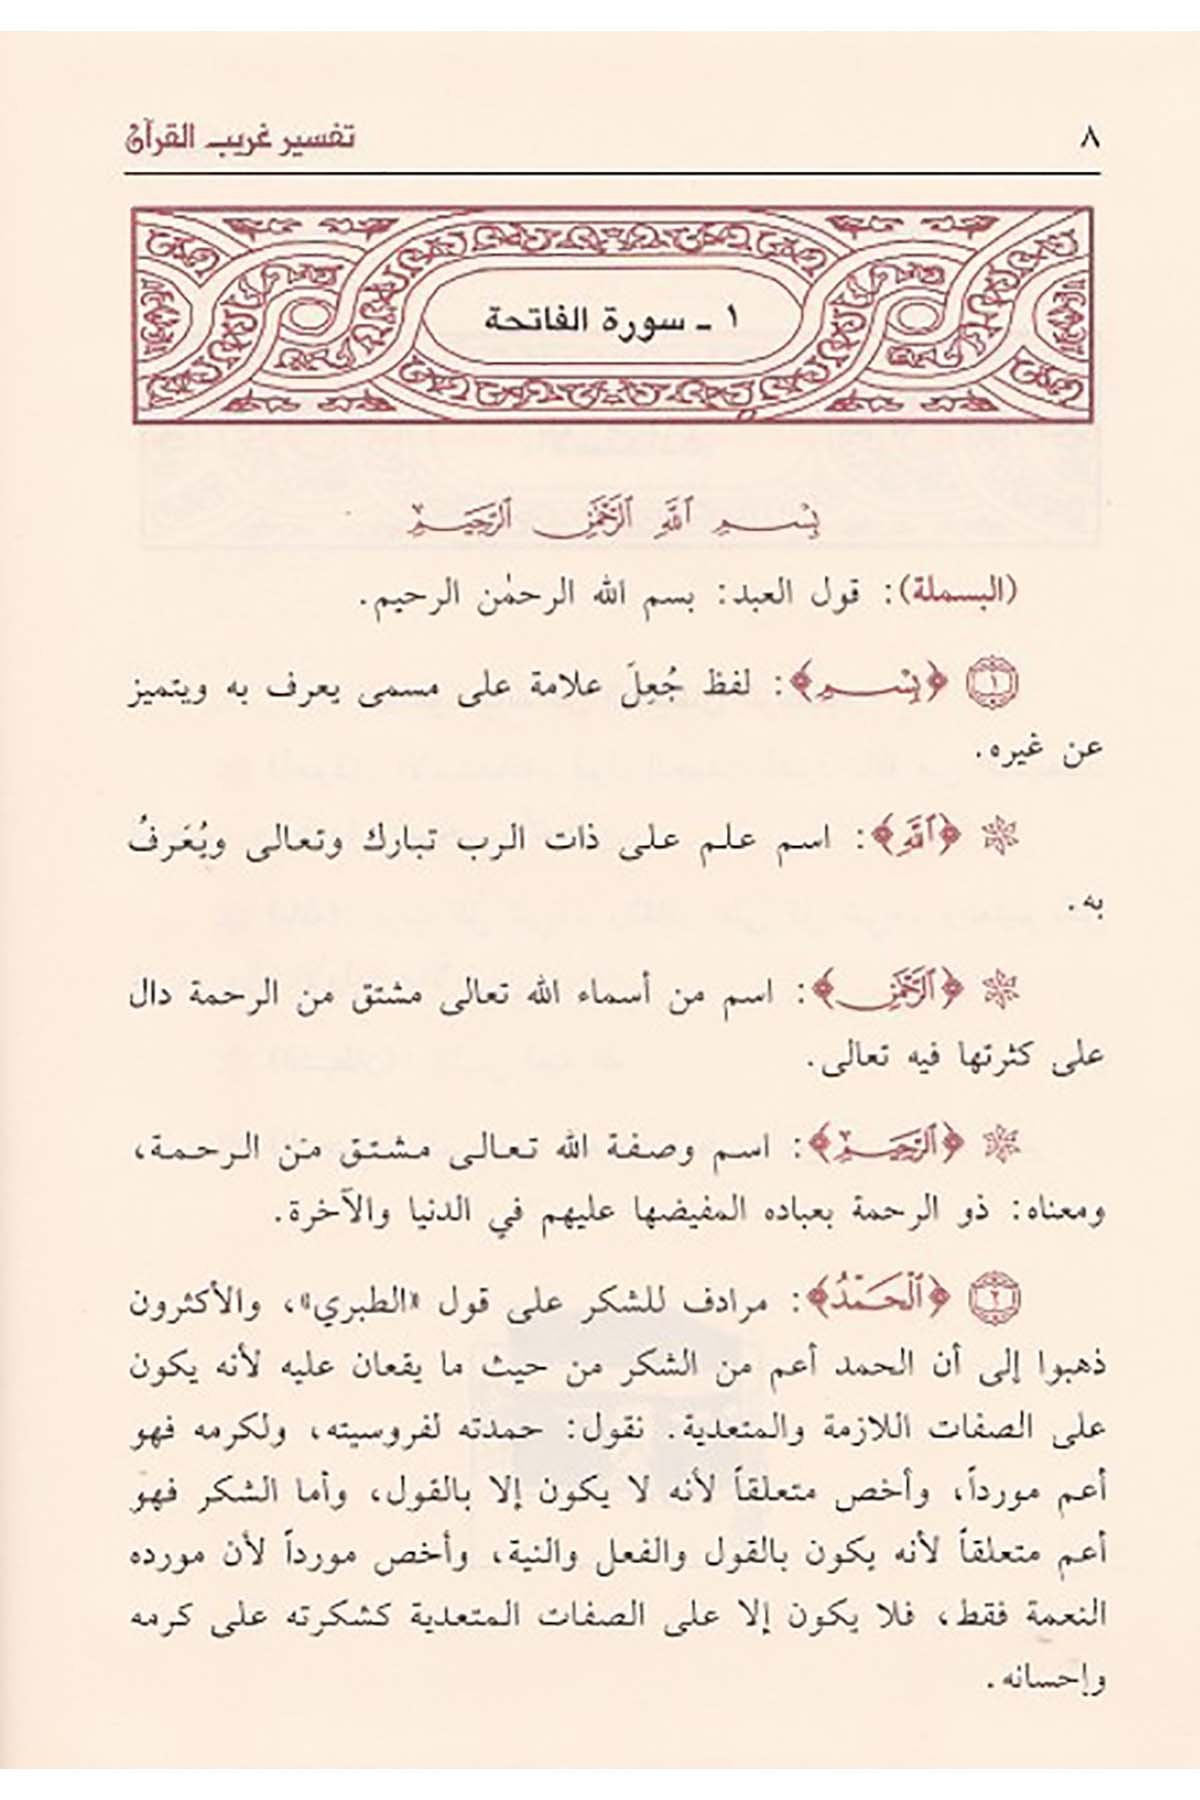 ٨
تفسير غريب القرآن
١ - سورة الفاتحة
بِسْمِ ٱللَّهِ ٱلرَّحْمَٰنِ ٱلرَّحِيمِ
(البسملة): قول العبد: بسم الله الرحمٰن الرحيم.
١ ﴿بِسْمِ﴾: لفظ جُعِلَ علامة على مسمى يعرف به ويتميز
عن غيره.
* ﴿ٱللَّهِ﴾: اسم علم على ذات الرب تبارك وتعالى ويُعَرفُ
به.
* ﴿ٱلرَّحْمَٰنِ﴾: اسم من أسماء الله تعالى مشتق من الرحمة دال
على كثرتها فيه تعالى.
* ﴿ٱلرَّحِيمِ﴾: اسم وصفة الله تعالى مشتق من الرحمة،
ومعناه: ذو الرحمة بعباده المفيضها عليهم في الدنيا والآخرة.
٢ ﴿ٱلْحَمْدُ﴾: مرادف للشكر على قول «الطبري»، والأكثرون
ذهبوا إلى أن الحمد أعم من الشكر من حيث ما يقعان عليه لأنه يكون
على الصفات اللازمة والمتعدية. نقول: حمدته لفروسيته، ولكرمه فهو
أعم مورداً، وأخص متعلقاً لأنه لا يكون إلا بالقول، وأما الشكر فهو
أعم متعلقاً لأنه يكون بالقول والفعل والنية، وأخص مورداً لأن مورده
النعمة فقط، فلا يكون إلا على الصفات المتعدية كشكرته على كرمه
وإحسانه.